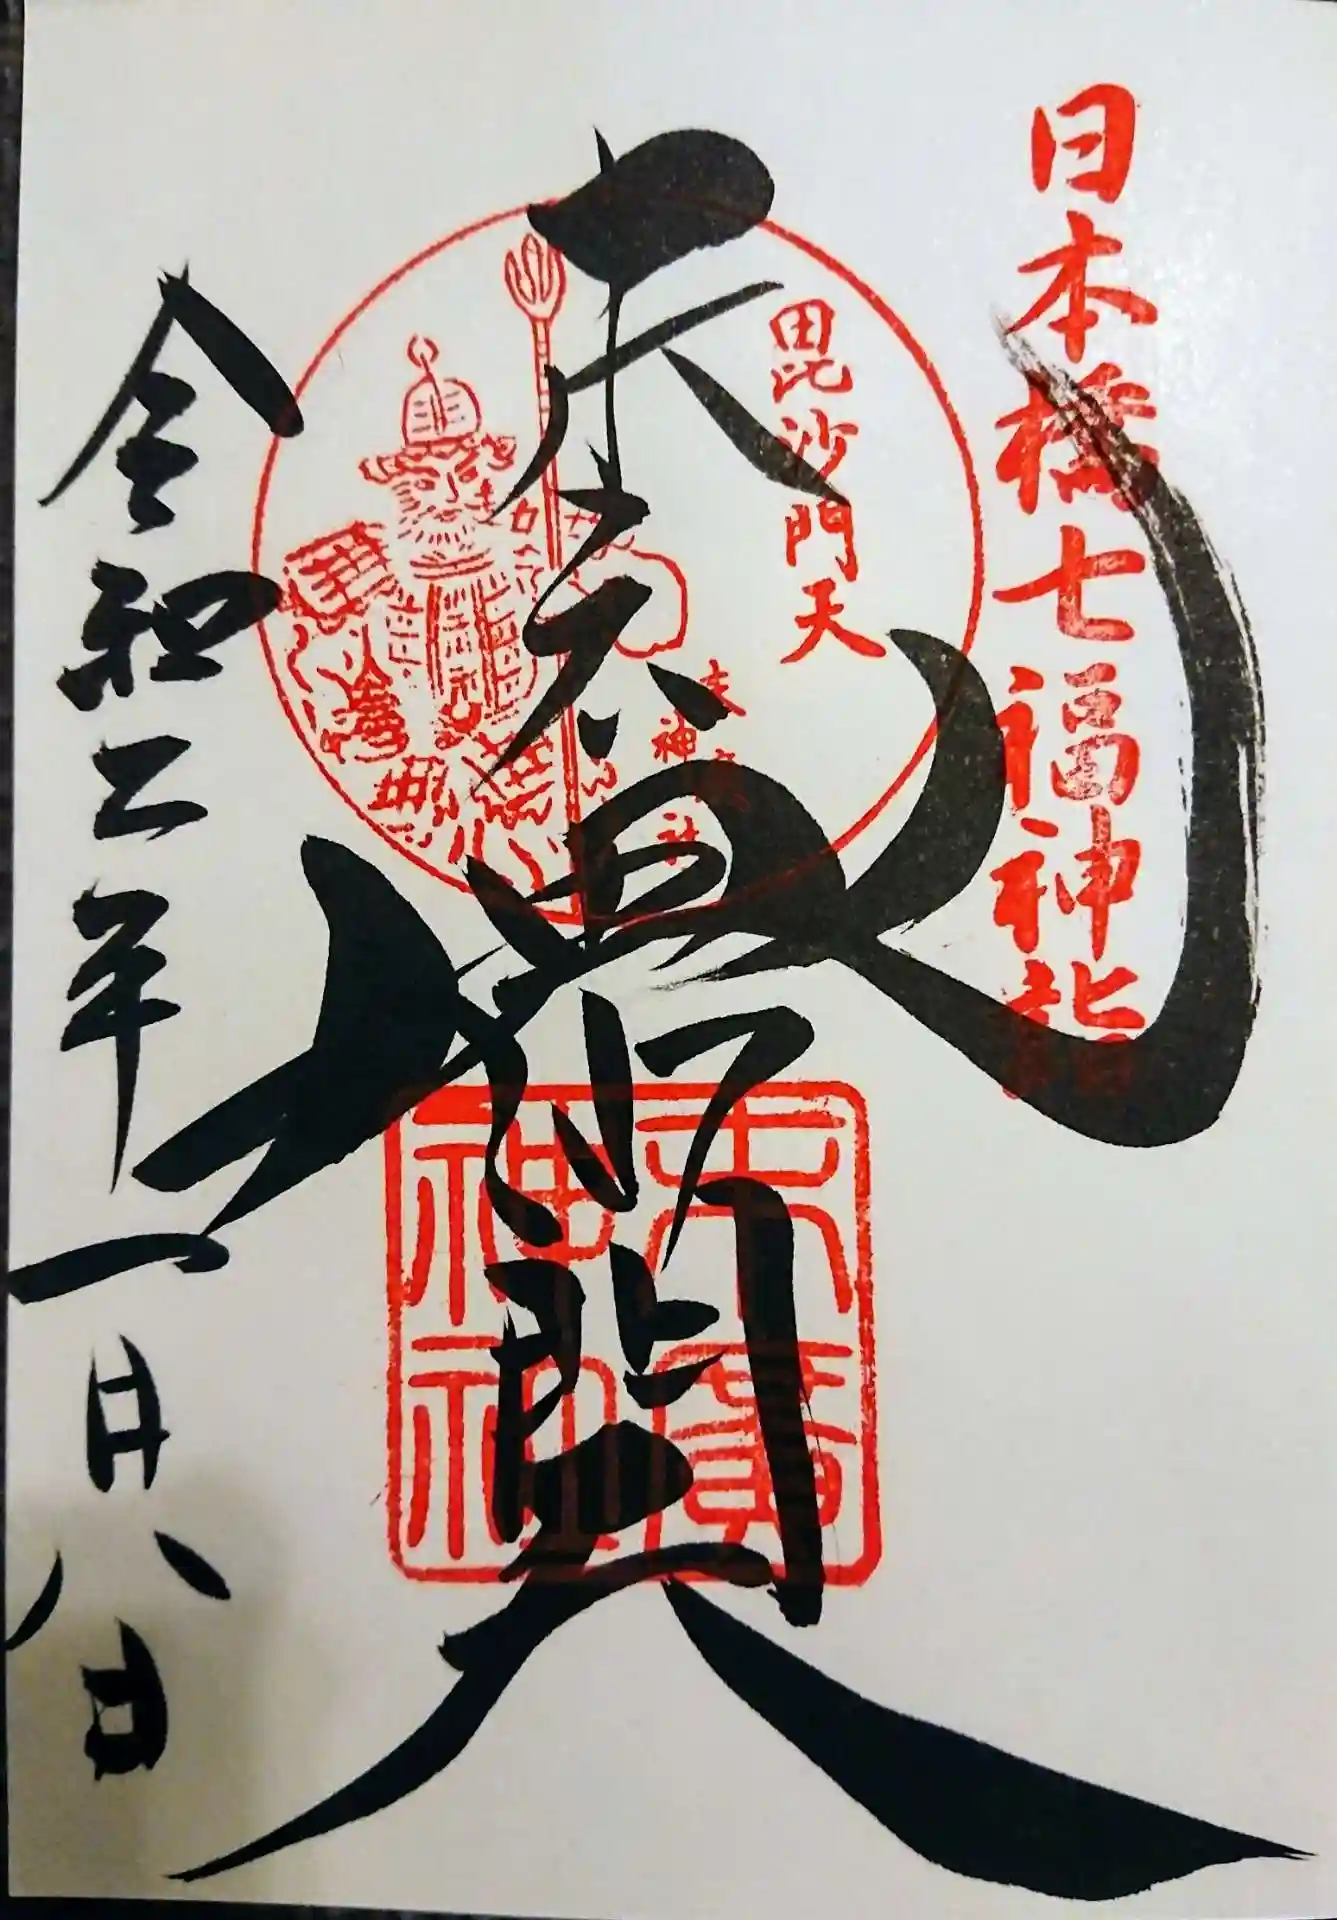 日本橋七福神詣
毘沙門天
末廣神社
末廣
毘沙門天
末廣
神社
令和二年一月八日